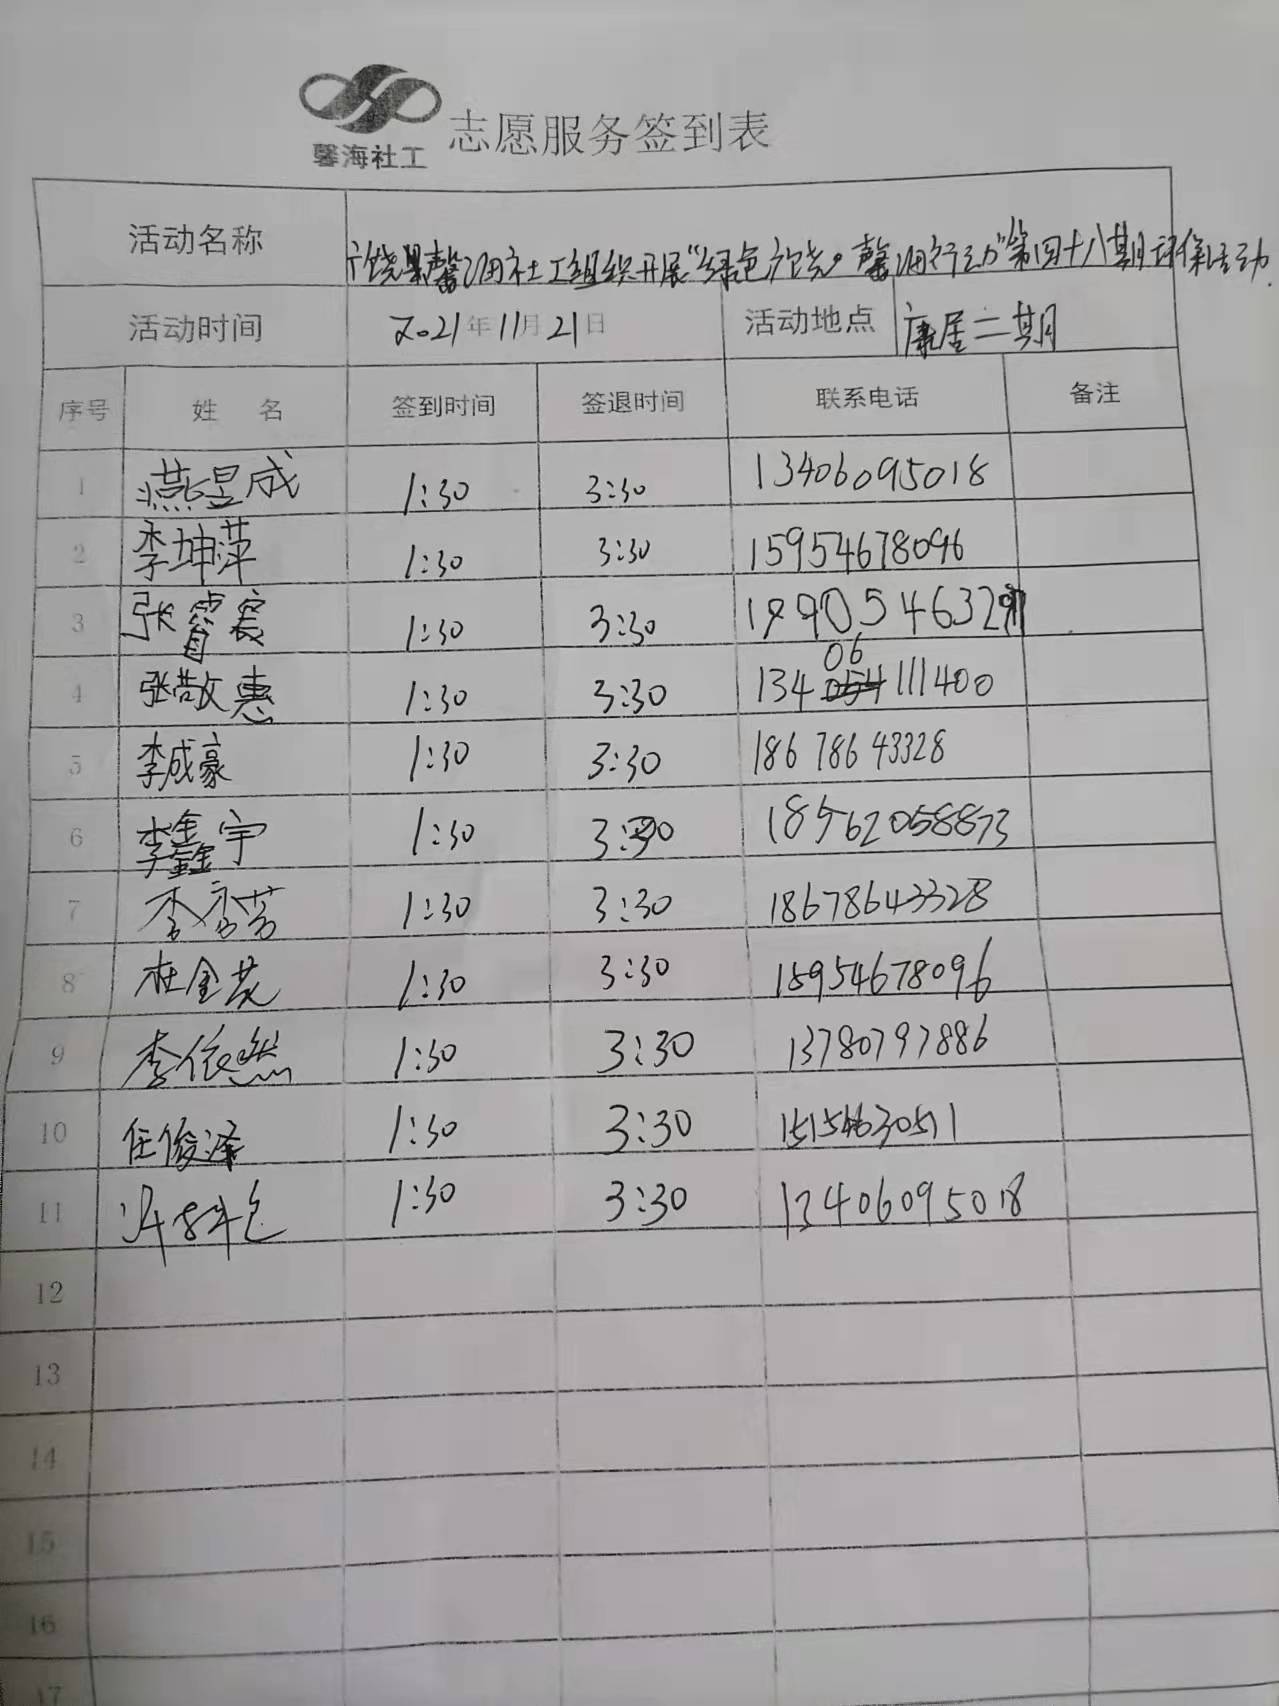 馨海社工
志愿服务签到表
活动名称 广饶县馨海社工组织开展“绿色广饶，馨海行动”第四十八期环保活动
活动时间 2021年11月21日 活动地点 康居二期
序号 姓 名 签到时间 签退时间 联系电话 备注
1 燕昱成 1:30 3:30 13406095018
2 李坤萍 1:30 3:30 15954678096
3 张 1:30 3:30
4 张敬惠 1:30 3:30 13406111400
5 李成豪 1:30 3:30 18678643328
6 李鑫宇 1:30 3:30 18562058873
7 李秀芳 1:30 3:30 18678643328
8 杜金芝 1:30 3:30 15954678096
9 李依然 1:30 3:30 13780797886
10 任俊泽 1:30 3:30 15154630511
11 1:30 3:30 13406095018
12
13
14
15
16
17